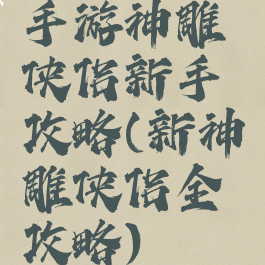 手游神雕
侠侣新手
攻略(新神
雕侠侣全
攻略)